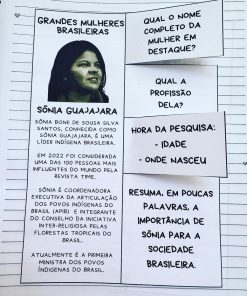 GRANDES MULHERES
BRASILEIRAS
SÔNIA GUAJAJARA
SÔNIA BONE DE SOUSA SILVA
SANTOS, CONHECIDA COMO
SÔNIA GUAJAJARA, É UMA
LÍDER INDÍGENA BRASILEIRA.
EM 2022 FOI CONSIDERADA
UMA DAS 100 PESSOAS MAIS
INFLUENTES DO MUNDO PELA
REVISTA TIME.
SÔNIA É COORDENADORA
EXECUTIVA DA ARTICULAÇÃO
DOS POVOS INDÍGENAS DO
BRASIL (APIB) E INTEGRANTE
DO CONSELHO DA INICIATIVA
INTER-RELIGIOSA PELAS
FLORESTAS TROPICAIS DO
BRASIL.
ATUALMENTE É A PRIMEIRA
MINISTRA DOS POVOS
INDÍGENAS DO BRASIL.
QUAL O NOME
COMPLETO DA
MULHER EM
DESTAQUE?
QUAL A
PROFISSÃO
DELA?
HORA DA PESQUISA:
- IDADE
- ONDE NASCEU
RESUMA, EM POUCAS
PALAVRAS, A
IMPORTÂNCIA DE
SÔNIA PARA A
SOCIEDADE
BRASILEIRA.